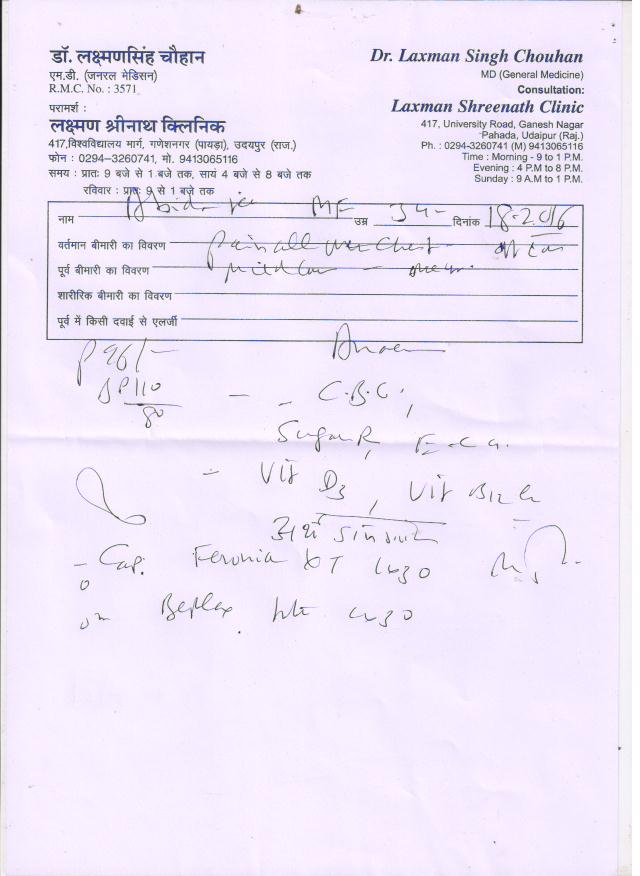 डॉ. लक्ष्मणसिंह चौहान
एम.डी. (जनरल मेडिसन)
R.M.C. No. : 3571
परामर्श :
लक्ष्मण श्रीनाथ क्लिनिक
417,विश्वविद्यालय मार्ग, गणेशनगर (पायड़ा), उदयपुर (राज.)
फोन : 0294-3260741, मो. 9413065116
समय : प्रातः 9 बजे से 1 बजे तक, सायं 4 बजे से 8 बजे तक
रविवार : प्रातः 9 से 1 बजे तक
Dr. Laxman Singh Chouhan
MD (General Medicine)
Consultation:
Laxman Shreenath Clinic
417, University Road, Ganesh Nagar
Pahada, Udaipur (Raj.)
Ph. : 0294-3260741 (M) 9413065116
Time : Morning - 9 to 1 P.M.
Evening : 4 P.M to 8 P.M.
Sunday : 9 A.M to 1 P.M.
नाम उम्र 34 दिनांक 18-2-2016
वर्तमान बीमारी का विवरण Pain all over Chest
पूर्व बीमारी का विवरण
शारीरिक बीमारी का विवरण
पूर्व में किसी दवाई से एलर्जी
P 96/-
BP 110
80
- C.B.C,
Sugar R, E.C.G.
- Vit D3, Vit B12
- Cap. Feronia XT 1x30
Beplex 1x30